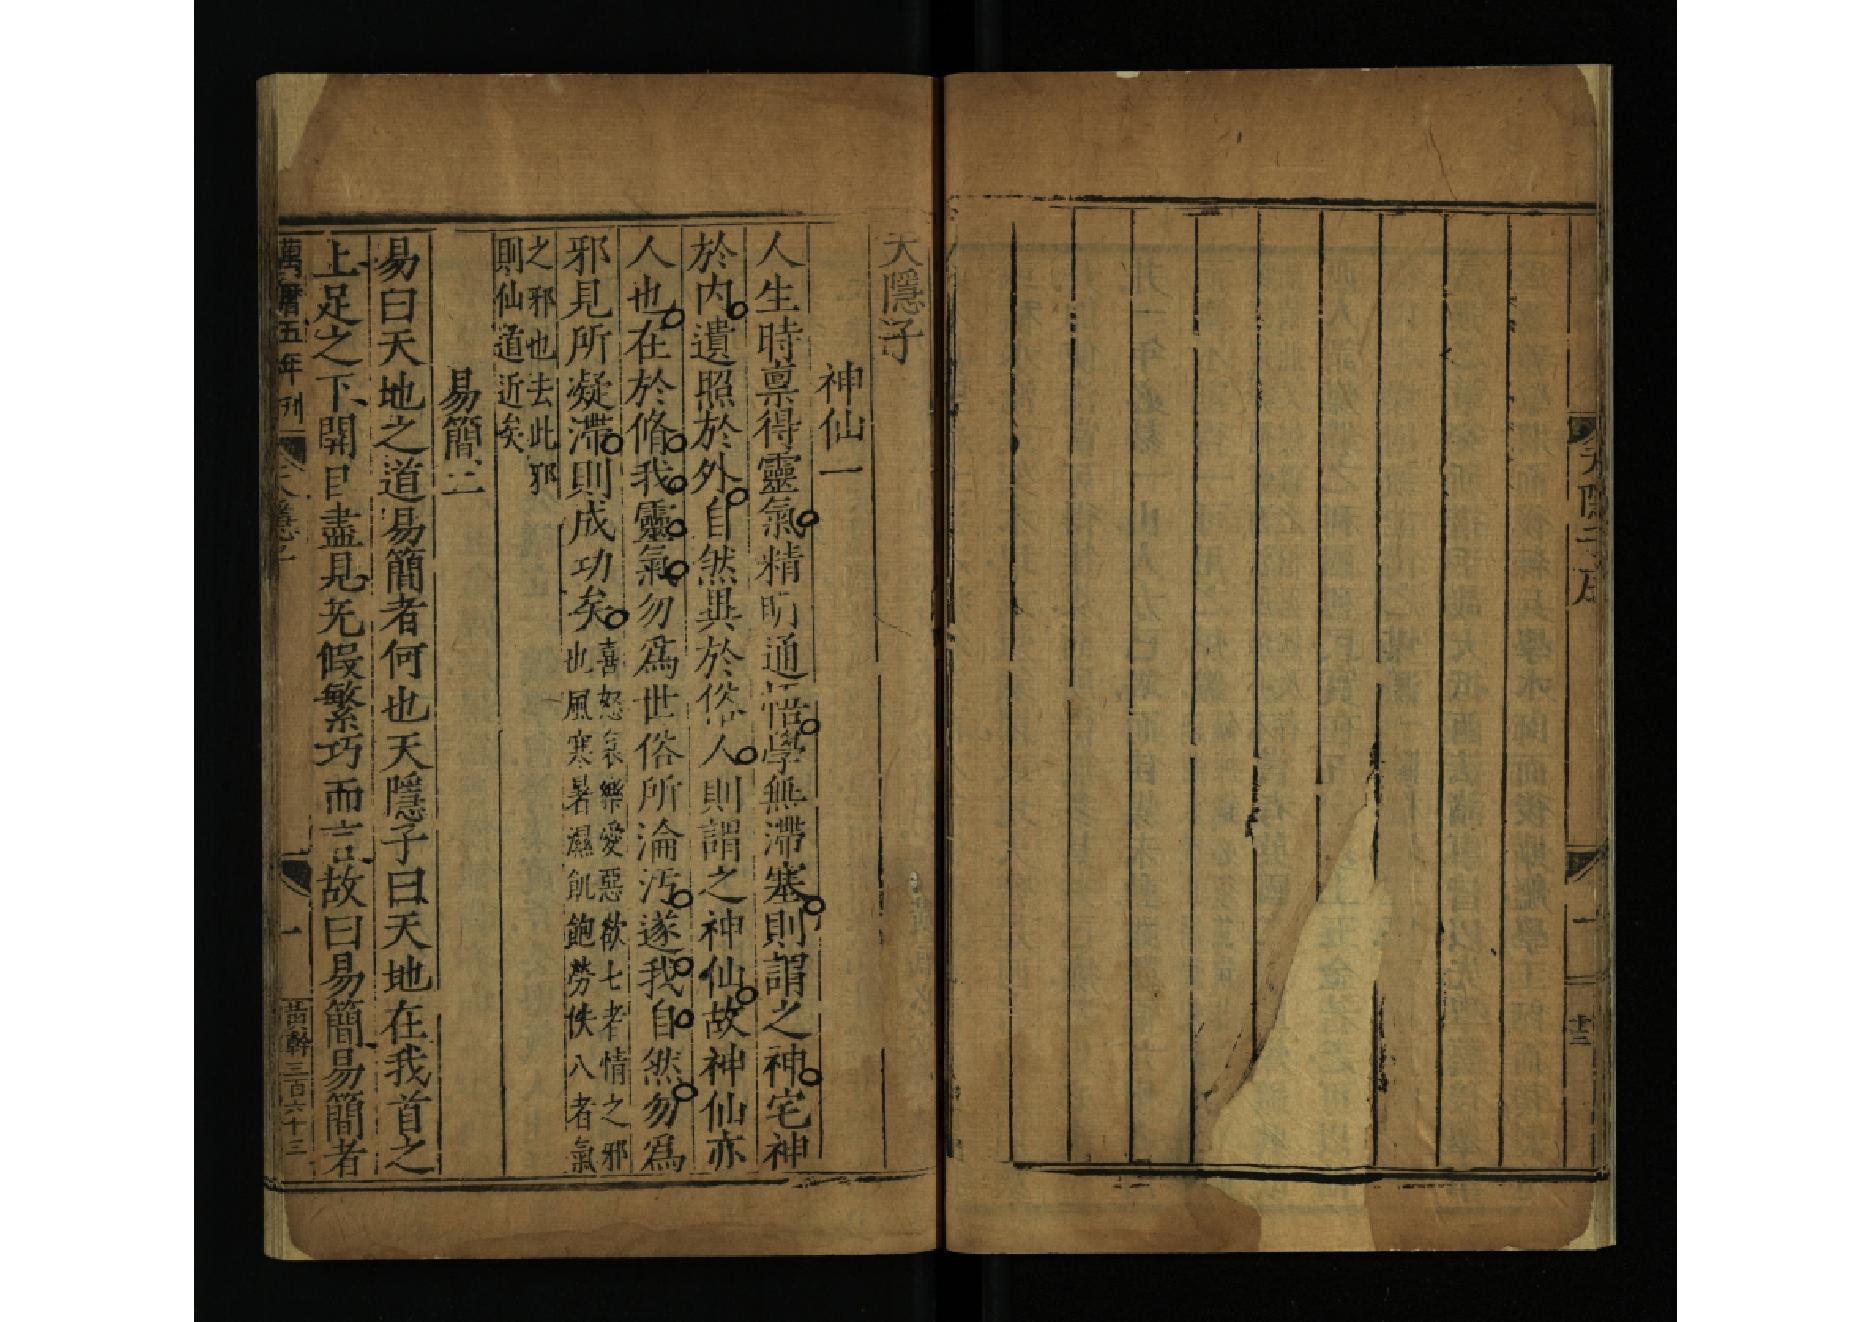 天隱子序
一
天隱子
神仙一
人生時禀得靈氣精明通悟學無滯塞則謂之神宅神
於内遺照於外自然異於俗人則謂之神仙故神仙亦
人也在於脩我靈氣勿爲世俗所淪汚遂我自然勿爲
邪見所凝滯則成功矣
喜怒哀樂愛惡欲七者情之邪
也風寒暑濕飢飽勞佚八者氣
之邪也去此邪
則仙道近矣
易簡二
易曰天地之道易簡者何也天隱子曰天地在我首之
上足之下開目盡見无假繁巧而言故曰易簡易簡者
萬曆五年刊
天隱子
一
黄幹三百六十三